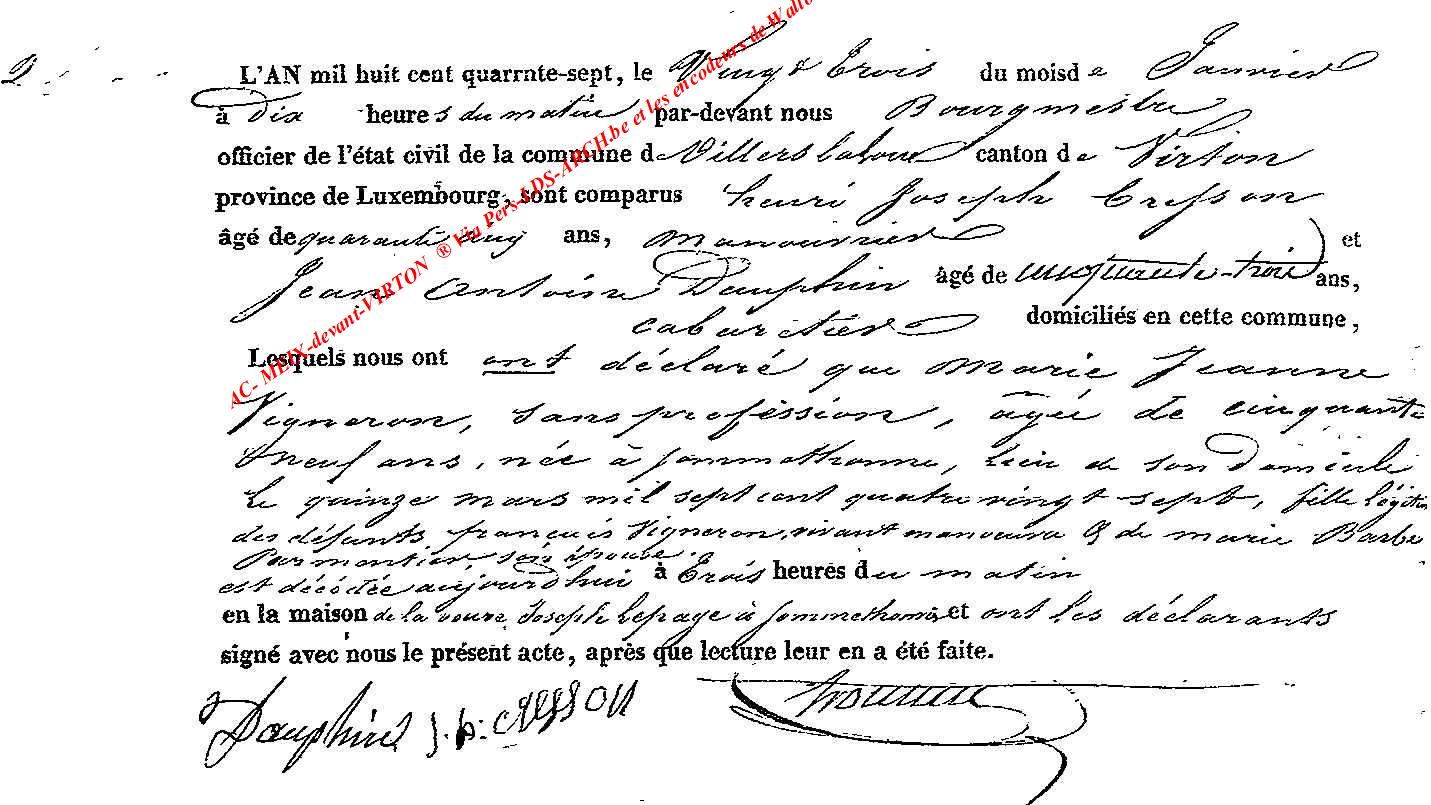 L'AN mil huit cent quarrnte-sept, le Vingt Trois du moisde Janvier
à Dix heures du matin par-devant nous Bourgmestre
officier de l'état civil de la commune de Villers laloue canton de Virton
province de Luxembourg, sont comparus henri Joseph Cresson
âgé de quarante cinq ans, manouvrier et
Jean Antoine Dauphin âgé de cinquante-trois ans,
cabaretier domiciliés en cette commune,
Lesquels nous ont ont déclaré que Marie Jeanne
Vigneron, sans profession, âgée de cinquante
neuf ans, née à Sommethonne, Lieu de son Domicile
Le quinze mars mil sept cent quatre vingt sept, fille Légitim
des défunts françois Vigneron, vivant manoeuvre & de marie Barbe
Parmentier, son épouse
est décédée aujourd'hui à Trois heures du matin
en la maison de la veuve Joseph Lepage à Sommethonne et ont les déclarants
signé avec nous le présent acte, après que lecture leur en a été faite.
Dauphin J. h: CRESSON
AC- MEIX-devant-VIRTON ® Via Pers-LDS-ARCH.be et les encodeurs de